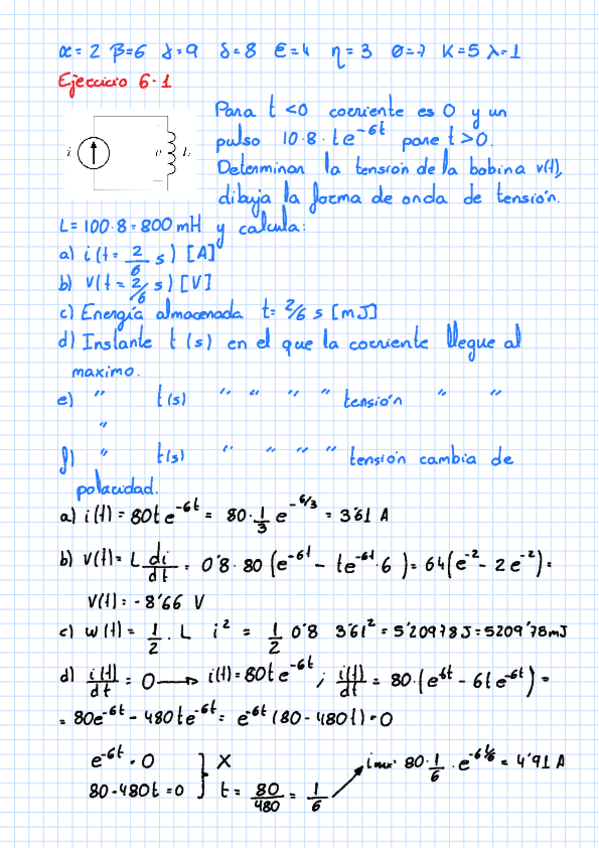 α=2 β=6 γ=9 δ=8 Є=4 η=3 θ=7 K=5 λ=1
Ejercicio 6.1
Para t<0 corriente es 0 y un
pulso 10·8·te^-6t para t>0.
i v L
Determinar la tensión de la bobina v(t),
dibuja la forma de onda de tensión.
L=100·8=800mH y calcula:
a) i(t=2/6 s) [A]
b) v(t=2/6 s) [V]
c) Energía almacenada t=2/6 s [mJ]
d) Instante t(s) en el que la corriente llegue al
maximo.
e) " t(s) " " " " tensión " "
"
f) " t(s) " " " " tensión cambia de
polaridad.
a) i(t)=80te^-6t = 80·1/3 e^-6/3 = 3'61 A
b) v(t)=L di/dt = 0'8·80(e^-6t - te^-6t·6)=64(e^-2 - 2e^-2)=
V(t)=-8'66 V
c) w(t)=1/2·L i^2 = 1/2 0'8 3'61^2=5'20978J=5209'78mJ
d) i(t)/dt=0→i(t)=80te^-6t; i(t)/dt=80·(e^6t-6te^-6t)=
=80e^-6t-480te^-6t=e^-6t(80-480t)=0
e^-6t=0 } X
80-480t=0 } t=80/480=1/6 → imax=80·1/6·e^-6·1/6=4'91 A